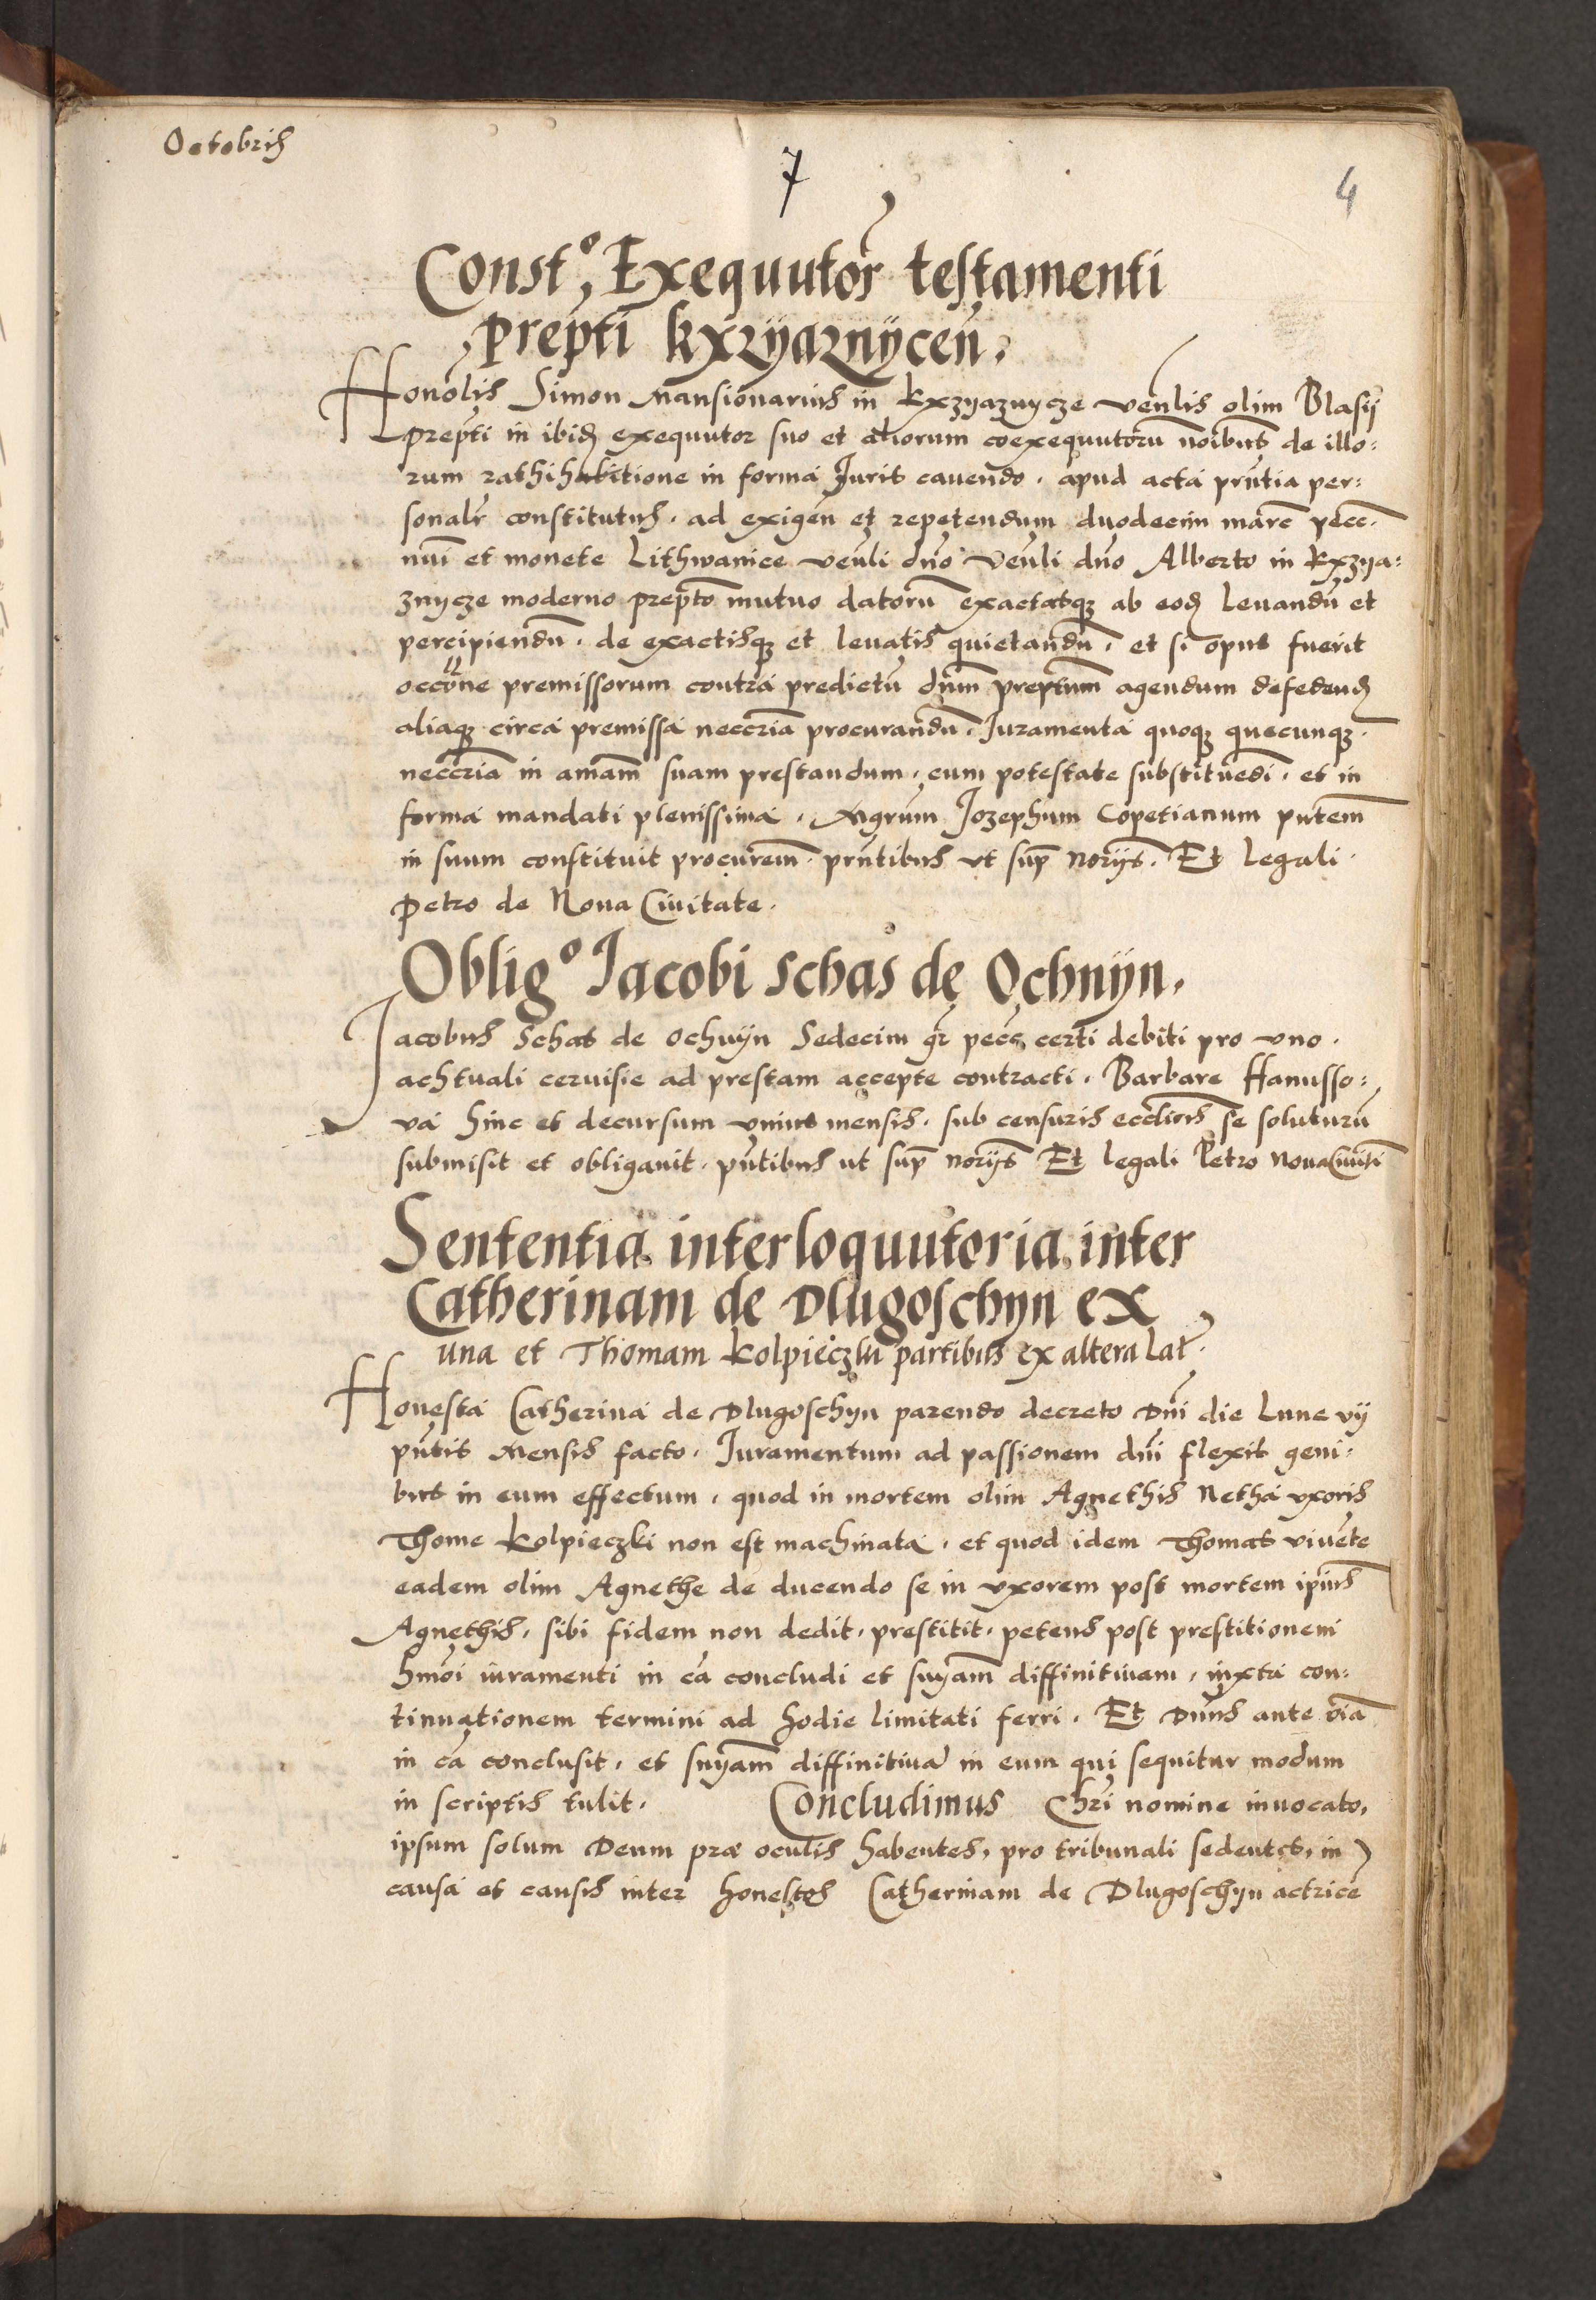 Octobris
7
4
Const°, Exequutor testamenti
prepti kxzyaznÿcen.
Honolis Simon Mansionarius in kxzyaznycze venlis olim Blasÿ
prepti in ibid exequutor suo et aliorum coexequutoru noibus de illo:
rum rathihabitione in forma Juris cauendo. apud acta prntia per:
sonalr constitutus. ad exigen et repetendum duodecim marc pecc.
nui et monete Lithwanice venli dno Venli dno Alberto in kxzya:
znycze moderno prepto mutuo datoru exactasq ab eod leuandu et
percipiendu. de exactisq et leuatis quietandu. et si opus fuerit
occone premissorum contra predictu dnm preptum agendum defedend
aliaq circa premissa neccria procurandu. Juramenta quoq quecunq.
neccria in amam suam prestandum, cum potestate substituedi. et in
forma mandati plenissima. Mgrum Jozephum Copetianum pntem
in suum constituit procurem. prntibus vt sup norÿs. Et legali.
Petro de Noua Ciuitate.
Oblig° Jacobi Schas de Ochnÿn.
Jacobus Schas de Ochnÿn Sedecim gr pecc certi debiti pro vno.
achtuali ceruisie ad prestam accepte contracti. Barbare Hanusso:
va hinc et decursum vnius mensis. sub censuris ecclicis se soluturu
submisit et obligauit. pntibus ut sup norÿs Et legali Petro Noua Ciuiti
Sententia interloquutoria inter
Catherinam de Dlugoschyn ex
una et Thomam Kolpieczki partibus ex altera lat.
Honesta Catherina de Dlugoschyn parendo decreto Dni die Lune vÿ
pntis Mensis facto. Juramentum ad passionem dni flexis geni:
bus in eum effectum. quod in mortem olim Agnethis Netha vxoris
Thome Kolpieczki non est machinata. et quod idem Thomas vivete
eadem olim Agnethe de ducendo se in vxorem post mortem ipius
Agnethis. sibi fidem non dedit. prestitit. petens post prestitionem
hmoi iuramenti in ca concludi et sniam diffinitiuam, iuxta con:
tinuationem termini ad hodie limitati ferri. Et Dnus ante oia
in ca conclusit. et sniam diffinitiua in eum qui sequitur modum
in scriptis tulit. Concludimus Chri nomine inuocato,
ipsum solum Deum præ oculis habentes, pro tribunali sedentes, in
causa et causis inter honestos Catherinam de Dlugoschyn actrice